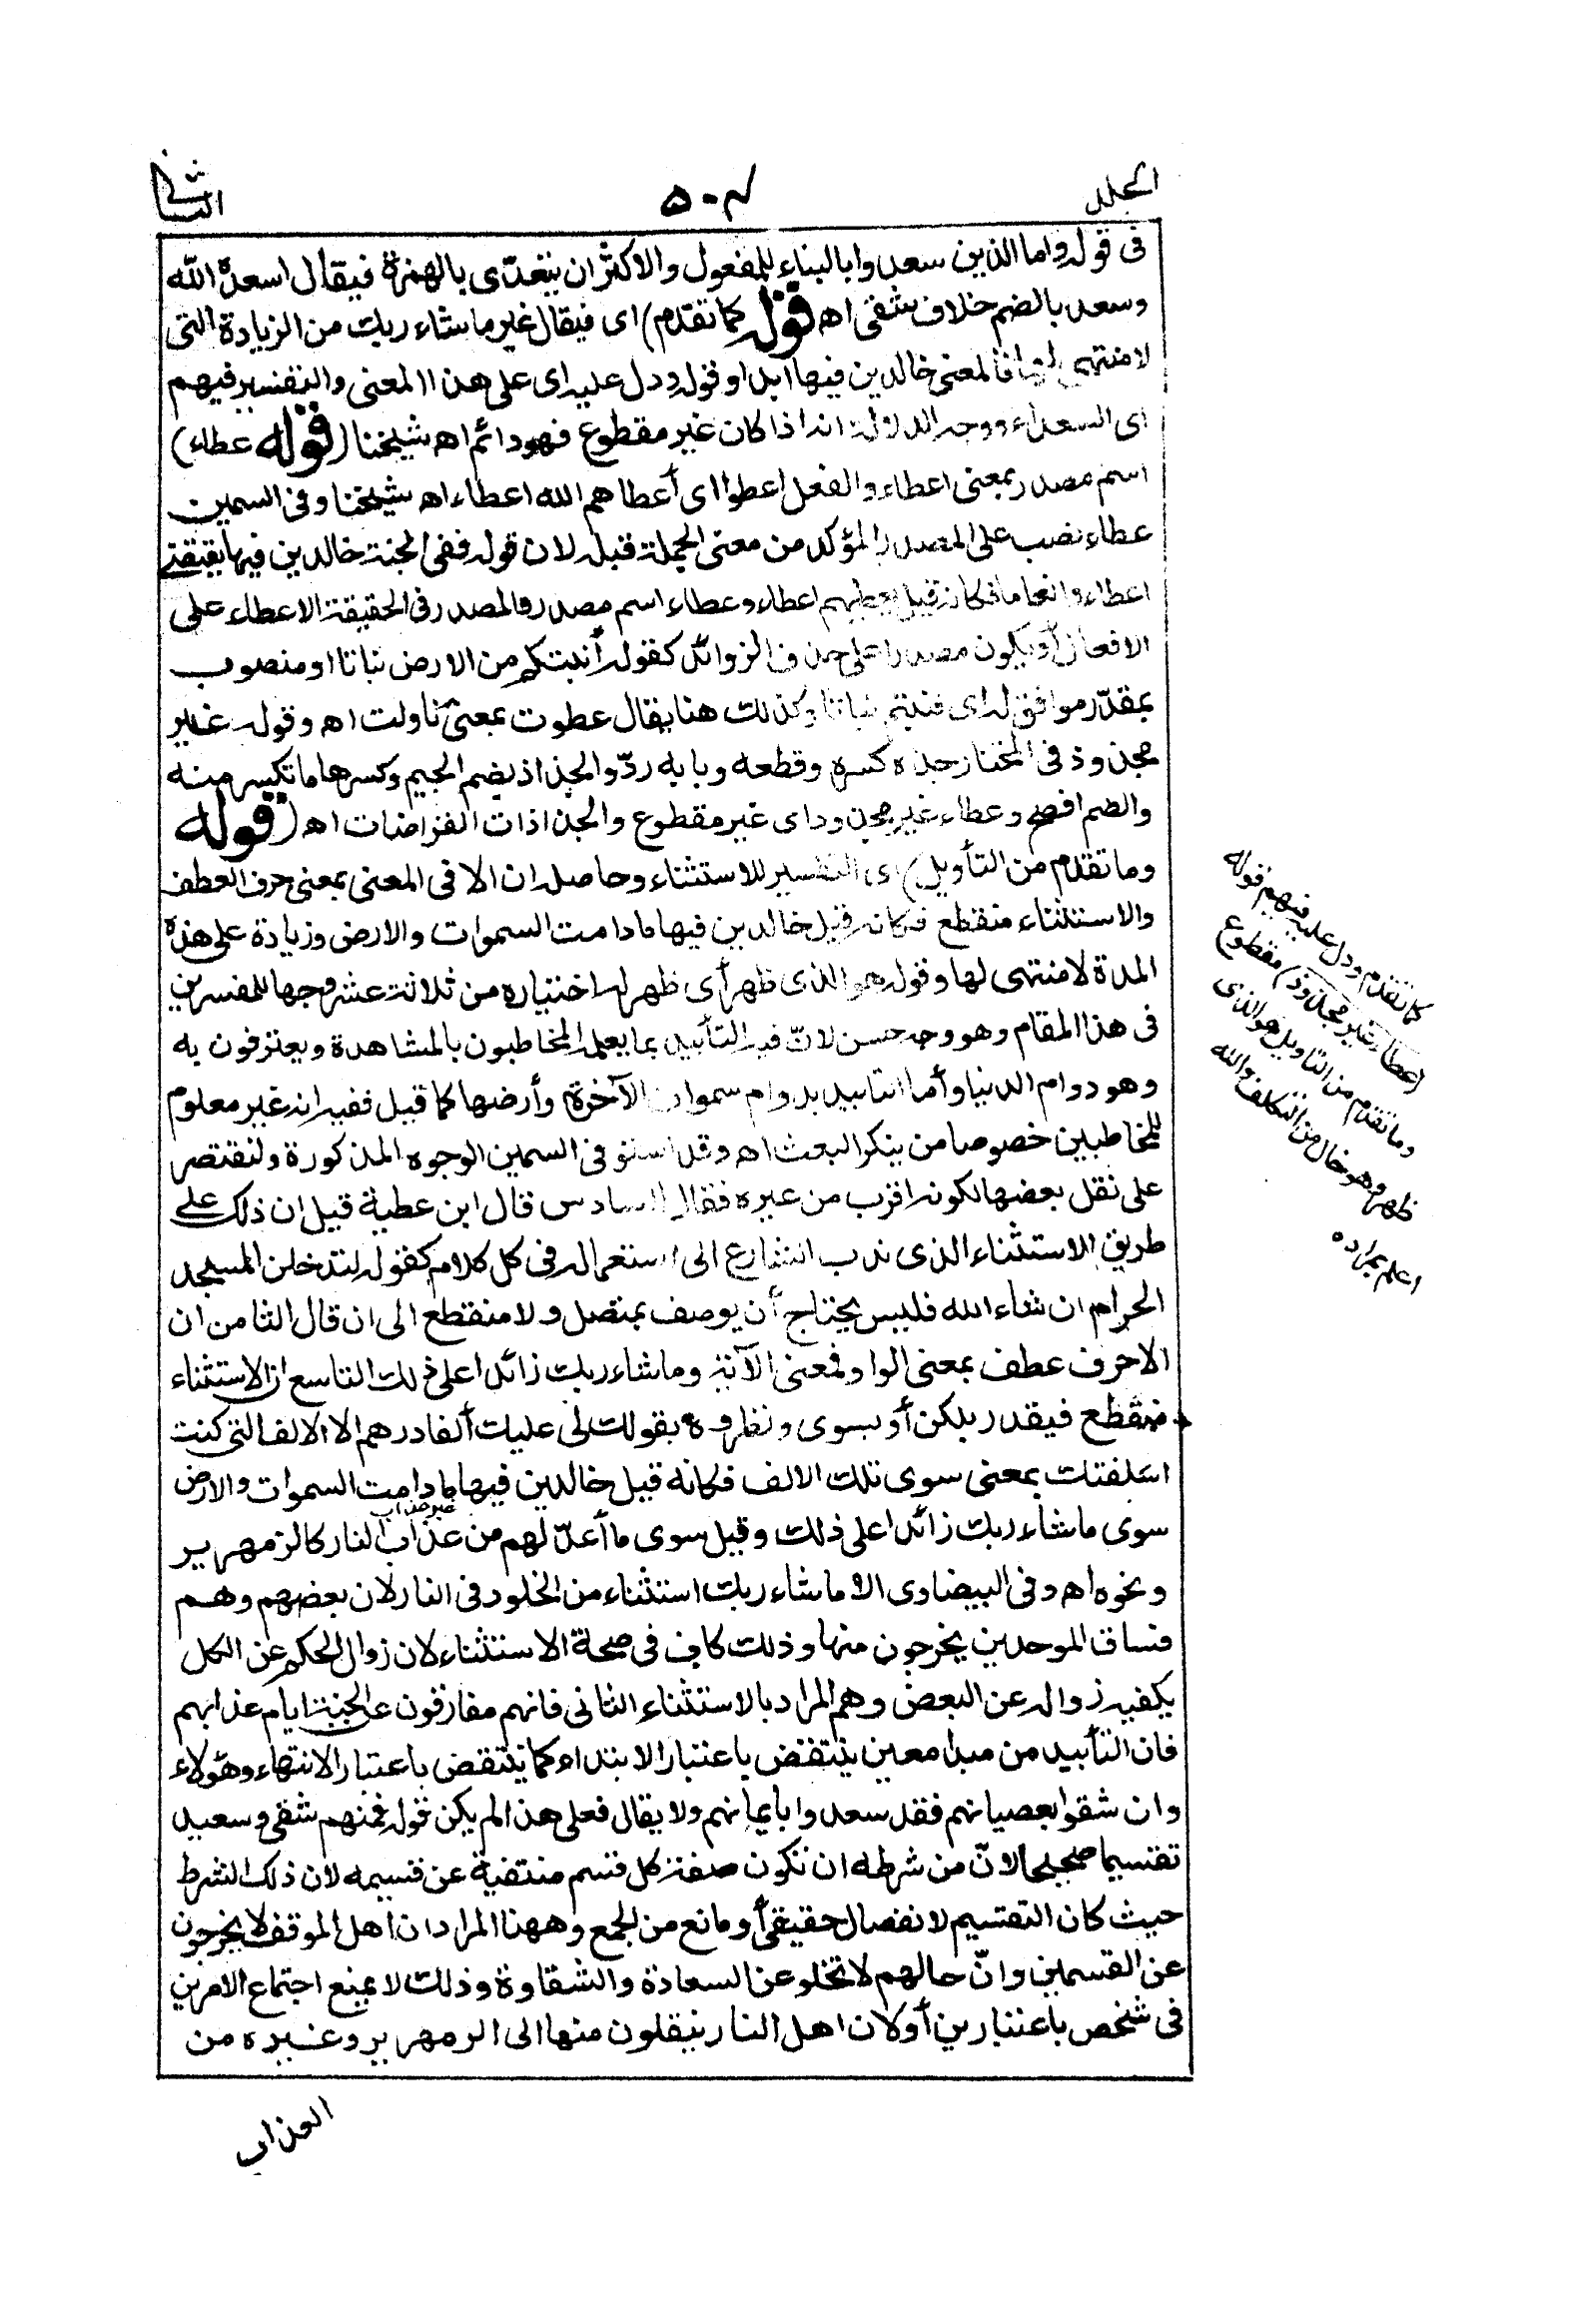 المجلد
٥٠٤
الثانى
فى قوله واما الذين سعدوا بالبناء للمفعول والاكثر ان يتعدّى بالهمزة فيقال اسعده الله
وسعد بالضم خلاف شقى اه قوله كما تقدّم) اى فيقال غير ما شاء ربك من الزيادة التى
لا منتهى لها فالمعنى خالدين فيها ابدا وقوله ودل عليه اى على هذا المعنى والتفسير فيهم
اى السعداء ووجه الدلالة انه اذا كان غير مقطوع فهو دائم اه شيخنا (قوله عطاء)
اسم مصدر بمعنى اعطاء والفعل اعطوا اى أعطاهم الله اعطاء اه شيخنا وفى السمين
عطاء نصب على المصدر المؤكد من معنى الجملة قبله لان قوله ففى الجنة خالدين فيها يقتضى
اعطاء وانعاما فكانه قيل يعطيهم اعطاء وعطاء اسم مصدر والمصدر فى الحقيقة الاعطاء على
الافعال أو يكون مصدرا على حذف الزوائد كقوله أنبتكم من الارض نباتا او منصوب
بمقدّر موافق له اى فنبتم نباتا وكذلك هنا يقال عطوت بمعنى ناولت اه وقوله غير
مجذوذ فى المختار جذه كسره وقطعه وبابه ردّ والجذاذ بضم الجيم وكسرها ما تكسر منه
والضم افصح وعطاء غير مجذوذ اى غير مقطوع والجذاذات القراضات اه (قوله
وما تقدم من التأويل) اى التفسير للاستثناء وحاصله ان الا فى المعنى بمعنى حرف العطف
والاستثناء منقطع فكانه قيل خالدين فيها ما دامت السموات والارض وزيادة على هذه
المدة لا منتهى لها وقوله هو الذى ظهر أى ظهر له اختياره من ثلاثة عشر وجها للمفسرين
فى هذا المقام وهو وجه حسن لانّ فيه التأبيد بما يعلمه المخاطبون بالمشاهدة ويعترفون به
وهو دوام الدنيا وأما التابيد بدوام سموات الآخرة وأرضها كما قيل ففيه انه غير معلوم
للمخاطبين خصوصا من ينكر البعث اه وقد استوفى السمين الوجوه المذكورة ولنقتصر
على نقل بعضها لكونه اقرب من غيره فقال السادس قال ابن عطية قيل ان ذلك على
طريق الاستثناء الذى ندب الشارع الى استعماله فى كل كلام كقوله لتدخلن المسجد
الحرام ان شاء الله فليس يحتاج أن يوصف بمتصل ولا منقطع الى ان قال الثامن ان
الا حرف عطف بمعنى الواو فمعنى الآية وما شاء ربك زائدا على ذلك التاسع ان الاستثناء
منقطع فيقدر بلكن أو بسوى ونظروه بقولك لى عليك ألفا درهم الا الالف التى كنت
اسلفتك بمعنى سوى تلك الالف فكانه قيل خالدين فيها ما دامت السموات والارض
سوى ما شاء ربك زائدا على ذلك وقيل سوى ما أعدّ لهم من عذاب النار كالزمهرير
ونحوه اه وفى البيضاوى الا ما شاء ربك استثناء من الخلود فى النار لان بعضهم وهم
فساق الموحدين يخرجون منها وذلك كاف فى صحة الاستثناء لان زوال الحكم عن الكل
يكفيه زواله عن البعض وهم المراد بالاستثناء الثانى فانهم مفارقون عن الجنة ايام عذابهم
فان التأبيد من مبدا معين ينتقض باعتبار الابتداء كما ينتقض باعتبار الانتهاء وهؤلاء
وان شقوا بعصيانهم فقد سعدوا بايمانهم ولا يقال فعلى هذا لم يكن قوله فمنهم شقى وسعيد
تقسيما صحيحا لانّ من شرطه ان تكون صفة كل قسم منتفية عن قسيمه لان ذلك الشرط
حيث كان التقسيم لانفصال حقيقى أو مانع من الجمع وههنا المراد ان اهل الموقف لا يخرجون
عن القسمين وانّ حالهم لا تخلو عن السعادة والشقاوة وذلك لا يمنع اجتماع الامرين
فى شخص باعتبارين أو لان اهل النار ينقلون منها الى الزمهرير وغيره من
العذاب
كما تقدم ودل عليه فيهم قوله
(عطاء غير مجذوذ) مقطوع
وما تقدم من التاويل هو الذى
ظهر وهو خال من التكلف والله
اعلم بمراده